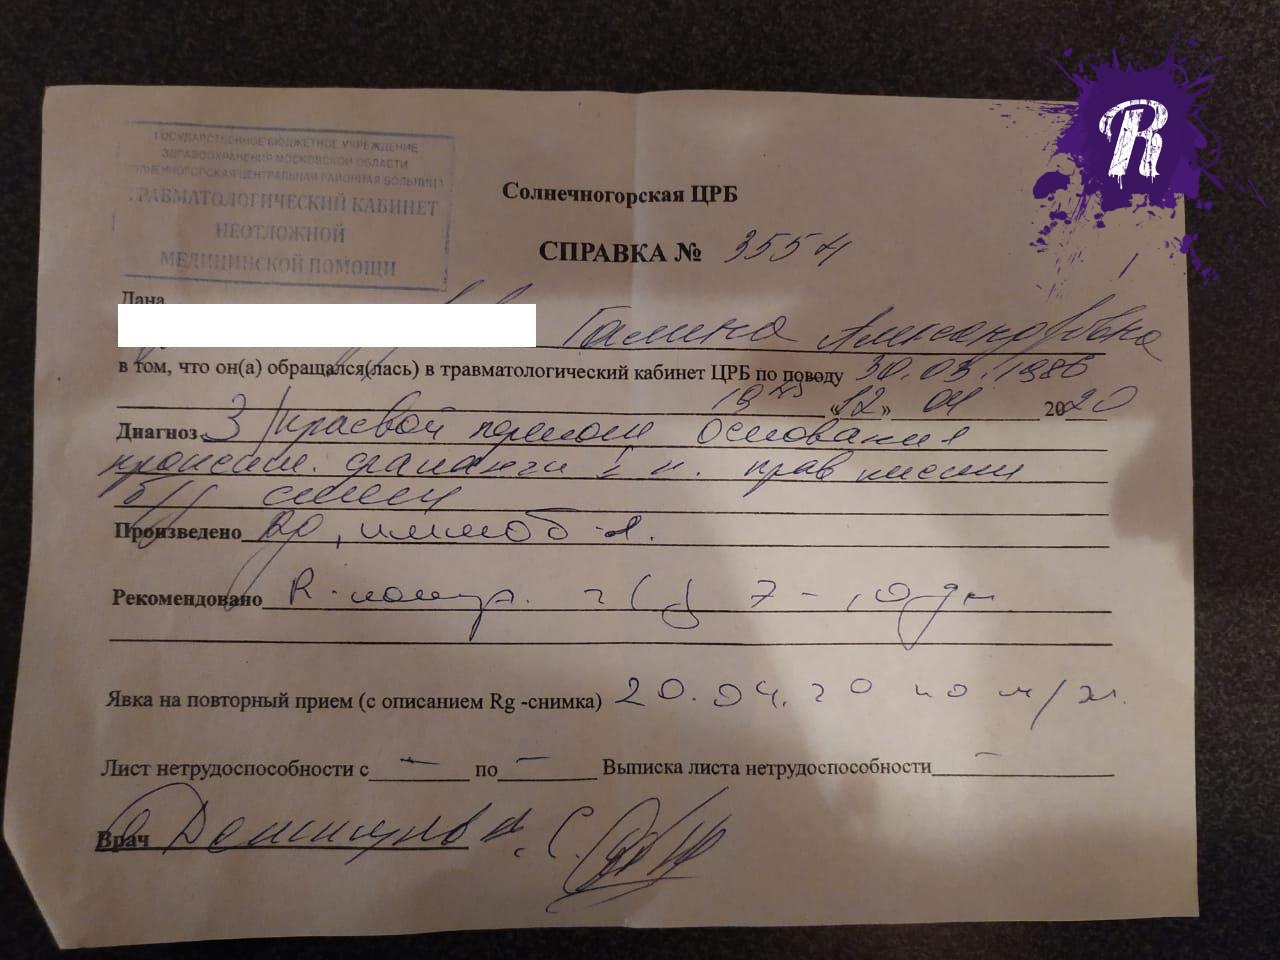 R
ГОСУДАРСТВЕННОЕ БЮДЖЕТНОЕ УЧРЕЖДЕНИЕ
ЗДРАВООХРАНЕНИЯ МОСКОВСКОЙ ОБЛАСТИ
ЦЕНТРАЛЬНАЯ РАЙОННАЯ БОЛЬНИЦА
ТРАВМАТОЛОГИЧЕСКИЙ КАБИНЕТ
НЕОТЛОЖНОЙ
МЕДИЦИНСКОЙ ПОМОЩИ
Солнечногорская ЦРБ
СПРАВКА № 3554
Дана
Галина Александровна
в том, что он(а) обращался(лась) в травматологический кабинет ЦРБ по поводу 30.03.1986
«12» 04 2020
Диагноз З/краевой перелом основания
проксим. фаланги I п. прав кисти
б/смещ
Произведено Rо, иммоб-я.
Рекомендовано R-контр. ч/з 7-10 дн
Явка на повторный прием (с описанием Rg -снимка) 20.04.20 по м/ж.
Лист нетрудоспособности с — по — Выписка листа нетрудоспособности —
Врач